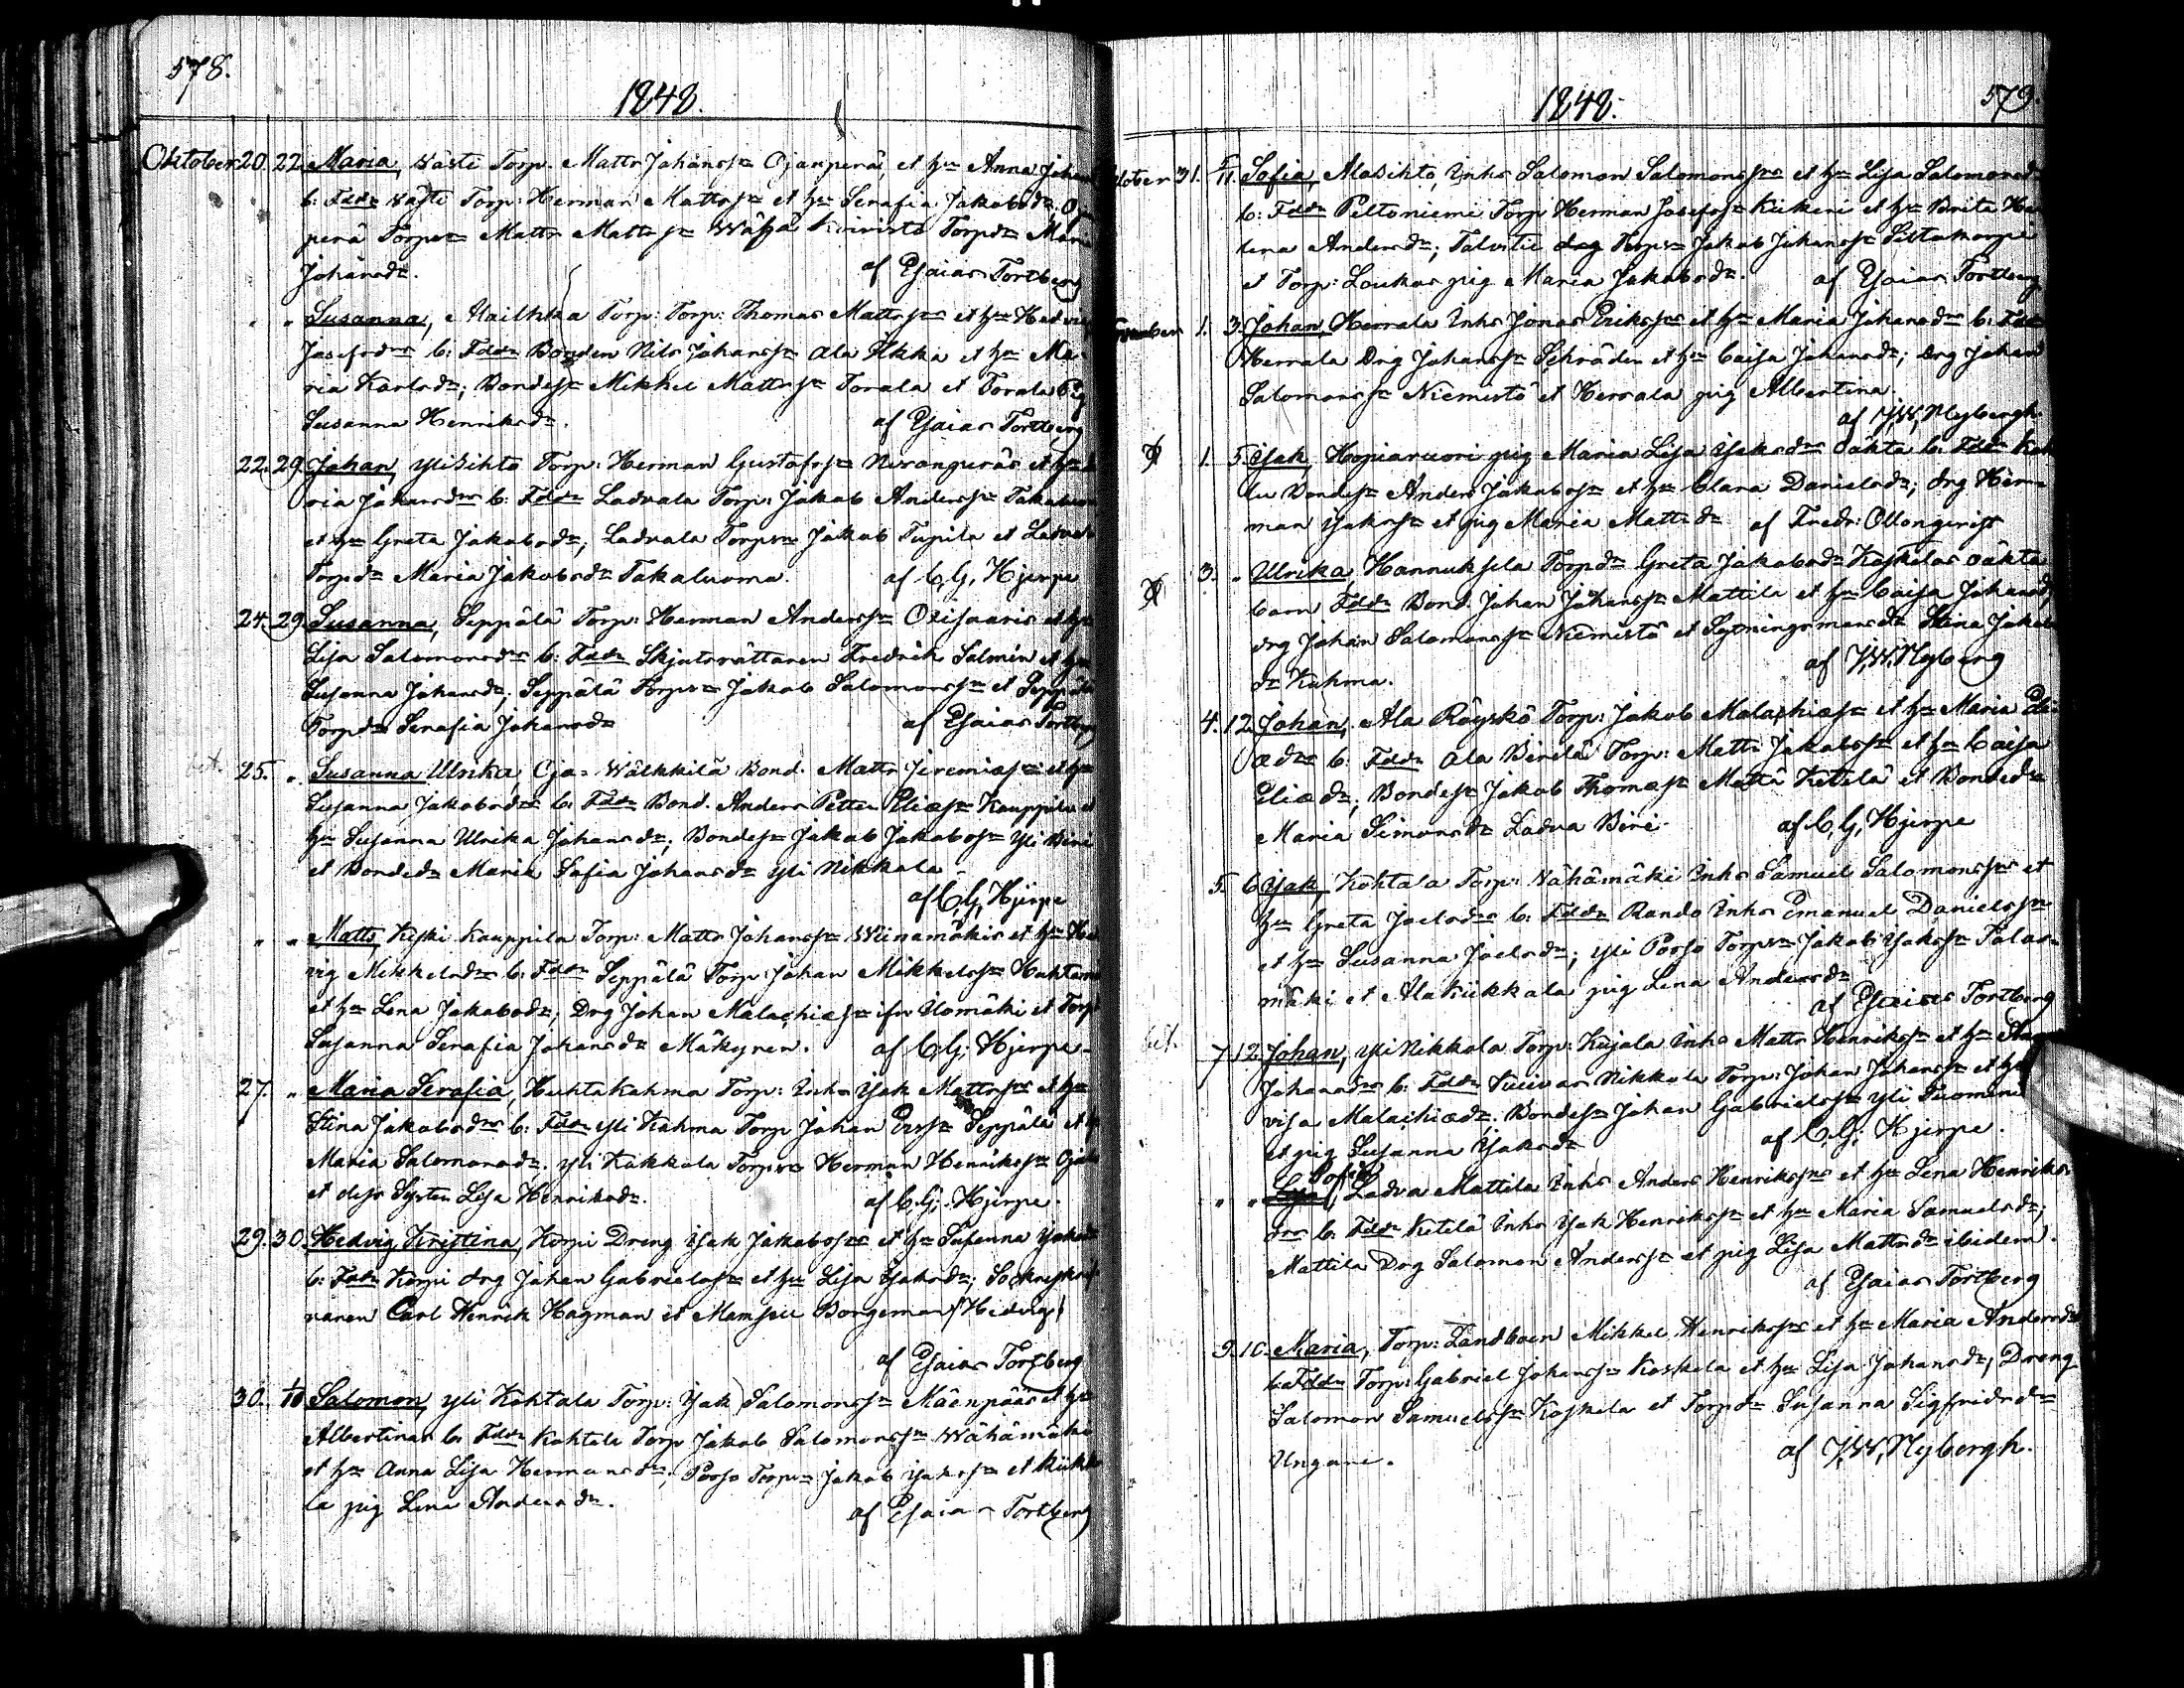 578.
1848.
Oktober 20. 22. Maria, Wästi Torp. Matts Johanss:n Ojanperä, et h:u Anna Johans
b: Fdd:e Wästi Torp: Herman Mattss:n et h:u Serafia Jakobsd:r, Ojan
perä Torpes:n Matts Mattss:n Wähä Kivistö Torpd:r Maria
Johansd:r. af Esaias Tortberg
" " Susanna, Torp: Torp: Thomas Mattss:ns et h:u Hedvig
Josefsd:rs b: Fdd:e Bonden Nils Johanss:n Ala Ikka et h:u Ma-
ria Karlsd:r; Bondes:n Mikkel Mattss:n Torala et Torala pig
Susanna Henriksd:r. af Esaias Tortberg
22. 29. Johan, Ylisihto Torp: Herman Gustafss:n et h:u
ria Johansd:rs b: Fdd:e Ladvala Torp: Jakob Anderss:n Takaluoma
et h:u Greta Jakobsd:r; Ladvala Torpes:n Jakob Tupila et Ladvala
Torpd:r Maria Jakobsd:r Takaluoma. af C, G, Hjerpe
24. 29. Susanna, Seppälä Torp: Herman Anderss:n et h:u
Lisa Salomonsd:rs b: Fdd:e Skjutsrättaren Fredrik Salmén et h:u
Susanna Johansd:r; Seppälä Torpes:n Jakob Salomonss:n et Seppälä
Torpd:r Serafia Johansd:r af Esaias Tortberg
bet. 25. " Susanna Ulrika, Oja-Wälkkilä Bond. Matts Jeremiæs:n et h:u
Susanna Jakobsd:rs b: Fdd:e Bond. Anders Petter Eliæs:n Kauppila et
h:u Susanna Ulrika Johansd:r; Bondes:n Jakob Jakobss:n Yli Biri
et Bonded:r Maria Sofia Johansd:r Yli Nikkola -
af C, G, Hjerpe
" " Matts, Keski Kauppila Torp: Matts Johanss:n Wiinamäkis et h:u Hed
vig Mikkelsd:rs b: Fdd:e Seppälä Torp: Johan Mikkelss:n
et h:u Lena Jakobsd:r; Drg Johan Malachiæs:n ifr. Uomäki et Torp:
Susanna Serafia Johansd:r Mäkynen. af C, G, Hjerpe.
27. " Maria Serafia, Huhtakahma Torp: Inh:s Isak Mattss:ns et h:u
Stina Jakobsd:rs b: Fdd:e Yli Kahma Torp Johan Erss:n Seppälä et h:u
Maria Salomonsd:r. Yli Kokkola Torpes:n Herman Henrikss:n Ojala
et dess Syster Lisa Henriksd:r. af C, G, Hjerpe.
29. 30. Hedvig Kristina, Korpi Dreng Isak Jakobss:ns et h:u Susanna Isaksd:rs
b: Fdd:e Korpi drg Johan Gabrielss:n et h:u Lisa Isaksd:r; Sockneskrif-
varen Carl Henrik Hagman et Mamsell Borgeman (Hedvig)
af Esaias Tortberg
30. 1/10 Salomon, Yli Kohtala Torp: Isak Salomonss:n Mäenpääs et h:u
Albertinas b: Fdd:e Kohtala Torp Jakob Salomonss:n Wähämäki
et h:u Anna Lisa Hermansd:r; Porso Torpes:n Jakob Isakss:n et Kiikka
la pig Lena Andersd:r. af Esaias Tortberg
1848.
579.
Oktober 31. 5/11. Sofia, Alasihto, Inhs Salomon Salomonss:ns et h:u Lisa Salomonsd:
b: Fdd:e Peltoniemi Torp Herman Josefss:n Kiikeri et h:u Brita He-
lena Andersd:r; Talvitie dag Torpes:n Jakob Johanss:n Siltakorpi
et Torp: Loukas pig Maria Jakobsd:r. af Esaias Tortberg
November 1. 3. Johan, Herrala Inhs Jonas Erikss:ns et h:u Maria Johansd:rs b: Fdd:e
Herrala Drg Johanss:n Schrådén et h:u Caisa Johansd:r; drg Johan
Salomonss:n Niemistö et Herrala pig Albertina.
af J, W, Nybergh
1. 5. Isak, Hopiavuori pig Maria Lisa Isaksd:rs oäkta b: Fdd:e
Bondes:n Anders Jakobss:n et h:u Clara Danielsd:r; drg Her-
man Isakss:n et pig Maria Mattsd:r af Fredr: Ollonqvist
3. " Ulrika, Hannuksela Torpd:r Greta Jakobsd:r Koskelas oäkta
barn Fdd:e Bond. Johan Johanss:n Mattila et h:u Caisa Johansd:r,
drg Johan Salomonss:n Niemistö et Sytningsmansd:r Stina Jakobs
d:r Kuhma. af J, W, Nyberg
4. 12. Johan, Ala Röyskö Torp: Jakob Malachiæs:n et h:u Maria Eli-
æd:rs b: Fdd:e Ala Birilä Torp: Matts Jakobss:n et h:u Caisa
Eliæd:r; Bondes:n Jakob Thomæs:n Mattä Ketelä et Bonded:r
Maria Simonsd:r Ladva Biri. af C, G, Hjerpe
5. 6. Isak, Kohtala Torp: Wähämäki Inhs Samuel Salomonss:ns et
h:u Greta Joelsd:rs b: Fdd:e Rando Inhs Emanuel Danielss:n
et h:u Susanna Joelsd:r; Yli Porso Torpes:n Jakob Isakss:n Talas-
mäki et Alakiikkala pig Lena Andersd:r
af Esaias Tortberg
bet. 7. 12. Johan, Yli Nikkola Torp: Kujala Inhs Matts Henrikss:n et h:u
Johansd:rs b: Fdd:e Nikkola Torp: Johan Johanss:n et h:u
visa Malachiæd:r; Bondes:n Johan Gabrielss:n Yli Tuomeni
et pig Susanna Isaksd:r af C, G, Hjerpe.
Sofia
" " Lisa, Ladva Mattila Inhs Anders Henrikss:ns et h:u Lena Henriks
d:rs b: Fdd:e Ketelä Inhs Isak Henrikss:n et h:u Maria Samuelsd:r;
Mattila Drg Salomon Anderss:n et pig Lisa Mattsd:r ibidem.
af Esaias Tortberg
9. 10. Maria, Torp: Landboen Mikkel Henrikss:ns et h:u Maria Andersd:rs
b: Fdd:e Torp: Gabriel Johanss:n Koskela et h:u Lisa Johansd:r, Dreng
Salomon Samuelss:n Koskela et Torpd:r Susanna Sigfridsd:r
Ungani. af J, W, Nybergh.